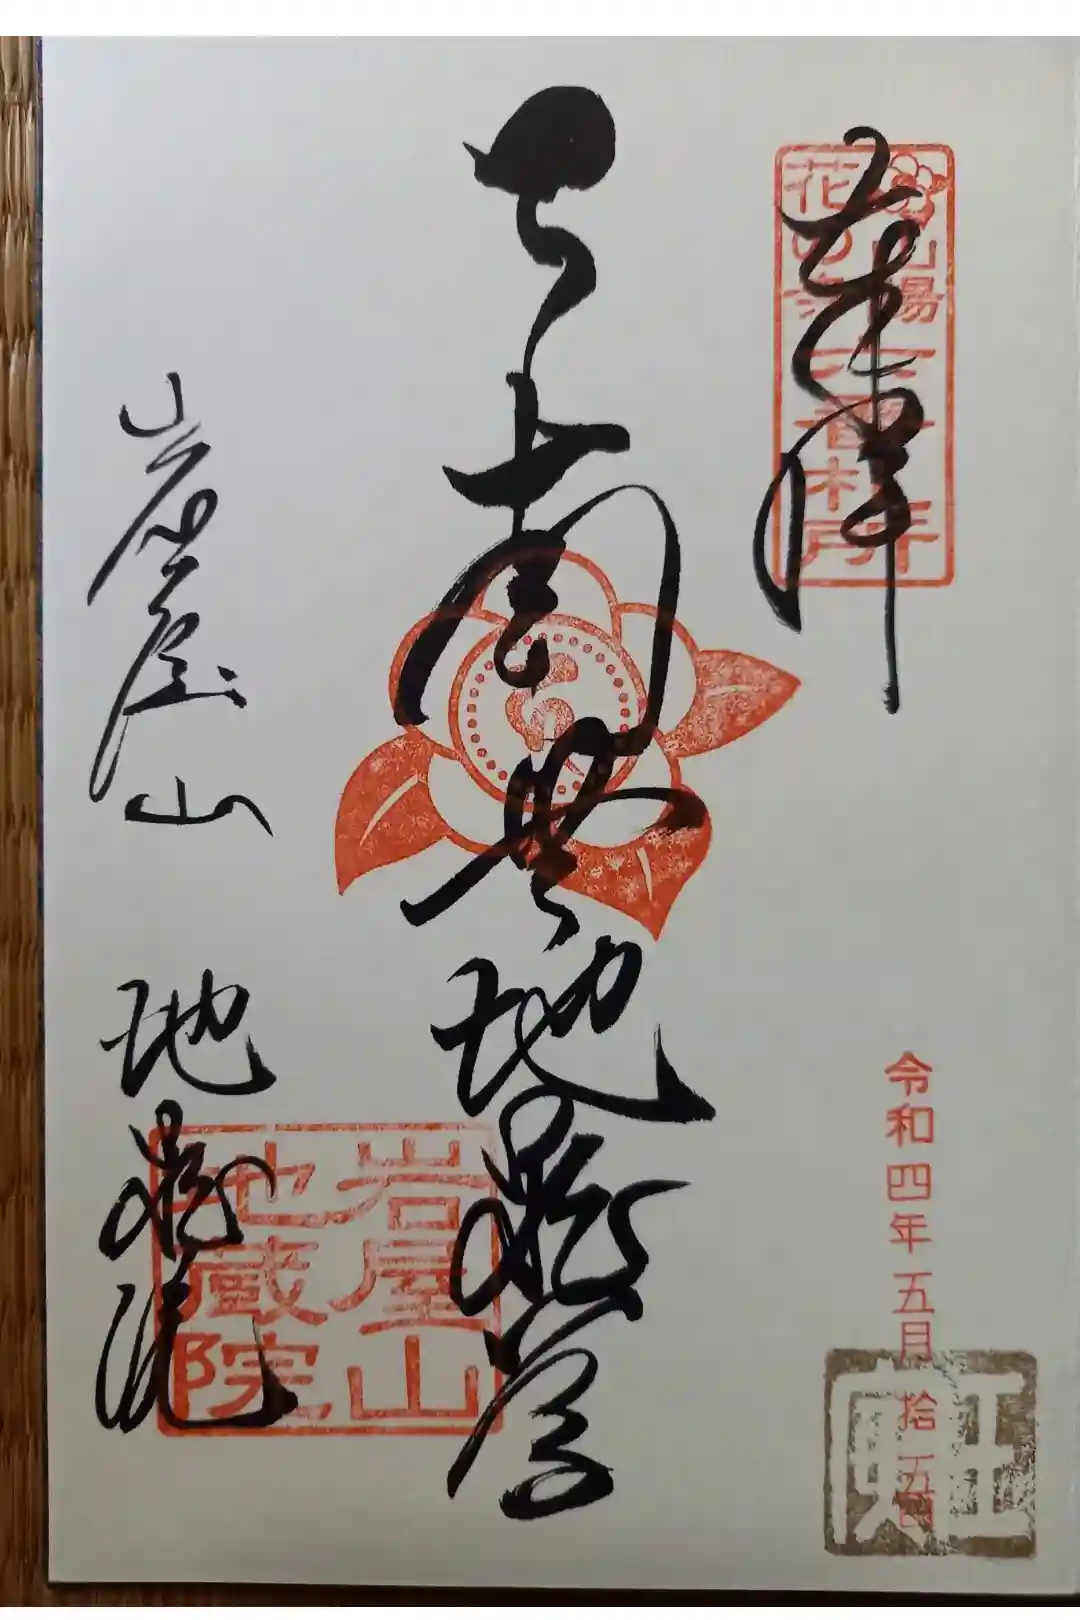 奉拝
山陽
花の寺
番札所
令和四年五月拾五日
南無地蔵尊
岩屋山 地蔵院
岩屋山
地蔵院